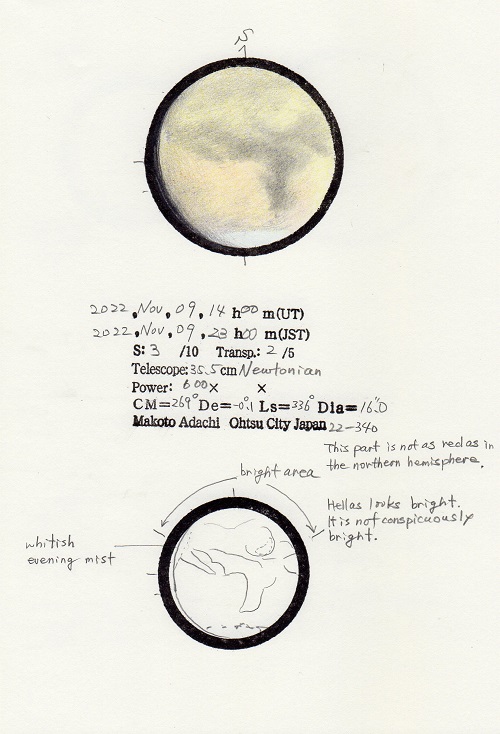 S
2022, Nov, 09, 14 h00 m(UT)
2022, Nov, 09, 23 h00 m(JST)
S: 3 /10 Transp.: 2 /5
Telescope: 35.5cm Newtonian
Power: 600× ×
CM=269° De=-0.1 Ls=336° Dia=16".0
Makoto Adachi Ohtsu City Japan 22-340
This part is not as red as in
the northern hemisphere.
bright area
Hellas looks bright.
It is not conspicuously
bright.
whitish
evening mist